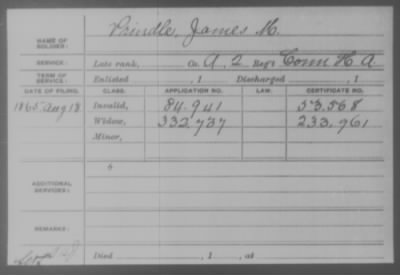 NAME OF SOLDIER: Prindle, James M.
SERVICE: Late rank, Co. A, 2 Reg't Conn H A
TERM OF SERVICE: Enlisted , 1 Discharged , 1
DATE OF FILING. CLASS. APPLICATION NO. LAW. CERTIFICATE NO.
1865 Aug 18 Invalid, 84.941 53.568
Widow, 332.737 233.961
Minor,
6
ADDITIONAL SERVICES:
REMARKS:
Died , 1 , at